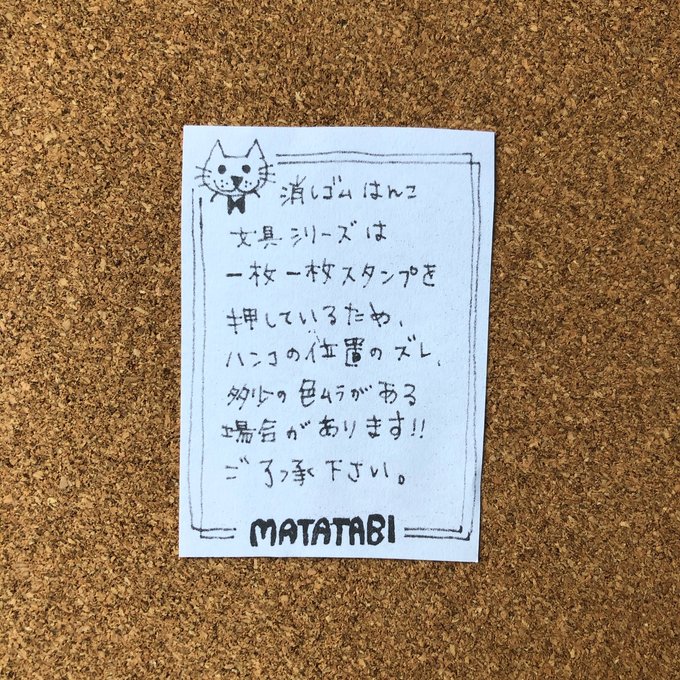 消しゴムはんこ
文具シリーズは
一枚一枚スタンプを
押しているため、
ハンコの位置のズレ、
多少の色ムラがある
場合があります!!
ご了承下さい。
MATATABI